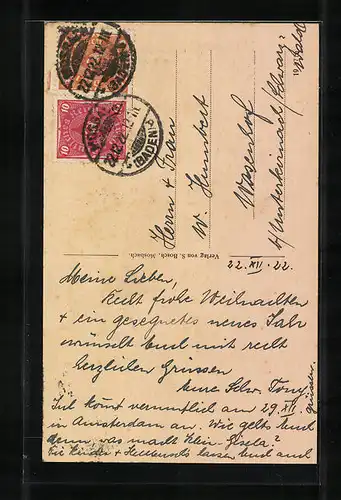 22. XII. 22.
Meine Lieben,
Recht frohe Weihnachten
+ ein gesegnetes neues Jahr
wünscht Euch mit recht
herzlichen Grüssen
Eure Schw. Tony
kommt vermutlich am 29. XII.
in Amsterdam an. Wie gehts Euch
denn, was macht Klein-Gisela?
Die Kinder + lassen Euch auch
grüssen.
Herrn + Frau
W.
b/ Unterkirnach/Schwarz-
wald
Verlag von S. Bosch, Mosbach.
10 Deutsches Reich 10
(BADEN)